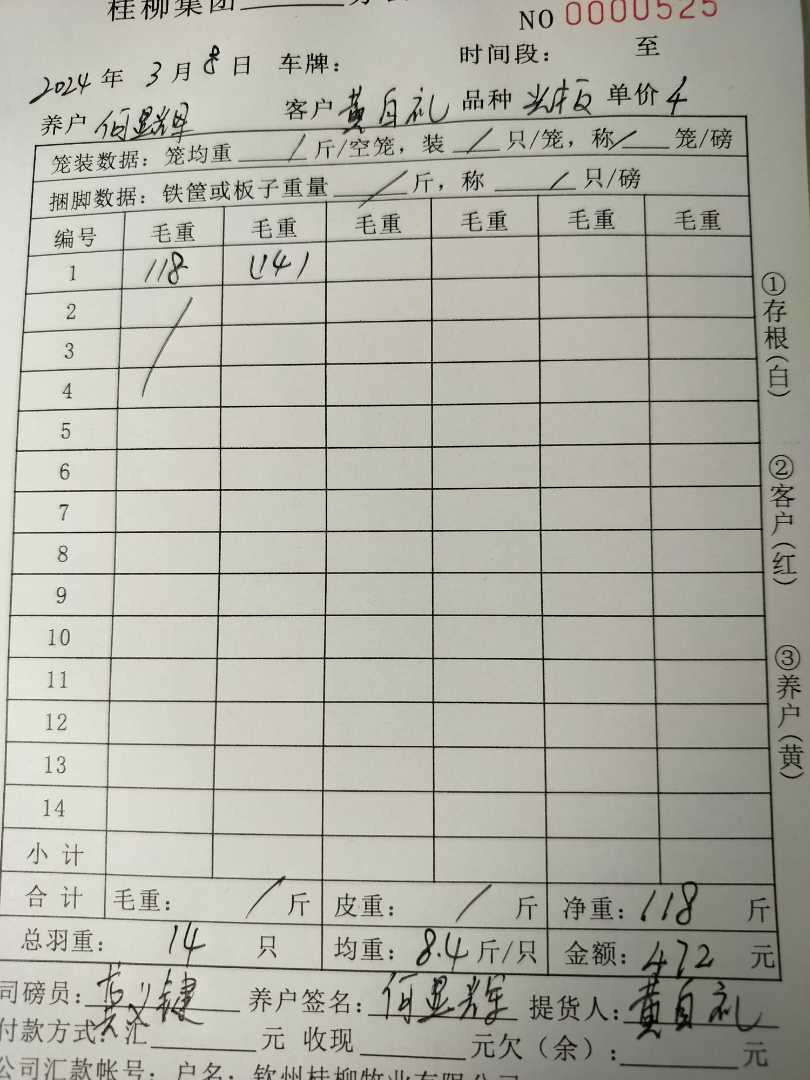 桂柳集团
NO 0000525
2024 年 3 月 8 日 车牌： 时间段： 至
养户 何显辉 客户 黄自礼 品种 光板 单价 4
笼装数据：笼均重 / 斤/空笼，装 / 只/笼，称 / 笼/磅
捆脚数据：铁筐或板子重量 / 斤，称 / 只/磅
编号 毛重 毛重 毛重 毛重 毛重 毛重
1 118 (14)
2
3
4
5
6
7
8
9
10
11
12
13
14
小计
合计 毛重： / 斤 皮重： / 斤 净重：118 斤
总羽重： 14 只 均重：8.4 斤/只 金额：472 元
司磅员： 养户签名：何显辉 提货人：黄自礼
付款方式：汇 元 收现 元欠（余）： 元
公司汇款帐号：户名：钦州桂柳牧业有限公司
①存根（白）
②客户（红）
③养户（黄）